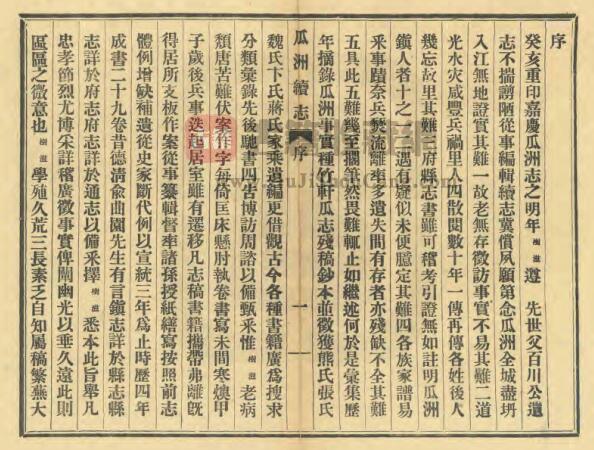 序
癸亥重印嘉慶瓜洲志之明年樹滋遵先世父百川公遺
志不揣譾陋從事編輯續志冀償夙願第念瓜洲全城盡坍
入江無地證實其難一故老無存徵訪事實不易其難二道
光水灾咸豐兵禍里人四散閱數十年一傳再傳各姓後人
幾忘故里其難三府縣志書雖可稽考引證無如註明瓜洲
鎭人者十之一遇有疑似未便臆定其難四各族家譜易
釆事蹟奈兵燹流離率多遺失間有存者亦殘缺不全其難
五具此五難幾至擱筆然畏難輒止如繼述何於是彙集歷
年摘錄瓜洲事實種竹軒瓜志殘稿鈔本並徵獲熊氏張氏
瓜洲續志
序
一
魏氏卞氏蔣氏家乘遺編更借觀古今各種書籍廣爲搜求
分類彙錄先後馳書四出博訪周諮以備甄釆惟樹滋老病
頹唐苦難伏案作字每倚匡床懸肘執卷書寫未間寒燠甲
子歲後兵事迭起居室雖有遷移凡志稿書籍攜帶弗離旣
得居所支板作案從事纂輯督率諸孫授紙繕寫按照前志
體例增缺補遺從史家斷代例以宣統三年爲止時歷四年
成書二十九卷昔德清俞曲園先生有言鎭志詳於縣志縣
志詳於府志府志詳於通志以備釆擇樹滋悉本此旨舉凡
忠孝節烈尤博釆詳稽廣徵事實俾闡幽光以垂久遠此則
區區之微意也樹滋學殖久荒三長素乏自知屬稿繁蕪大